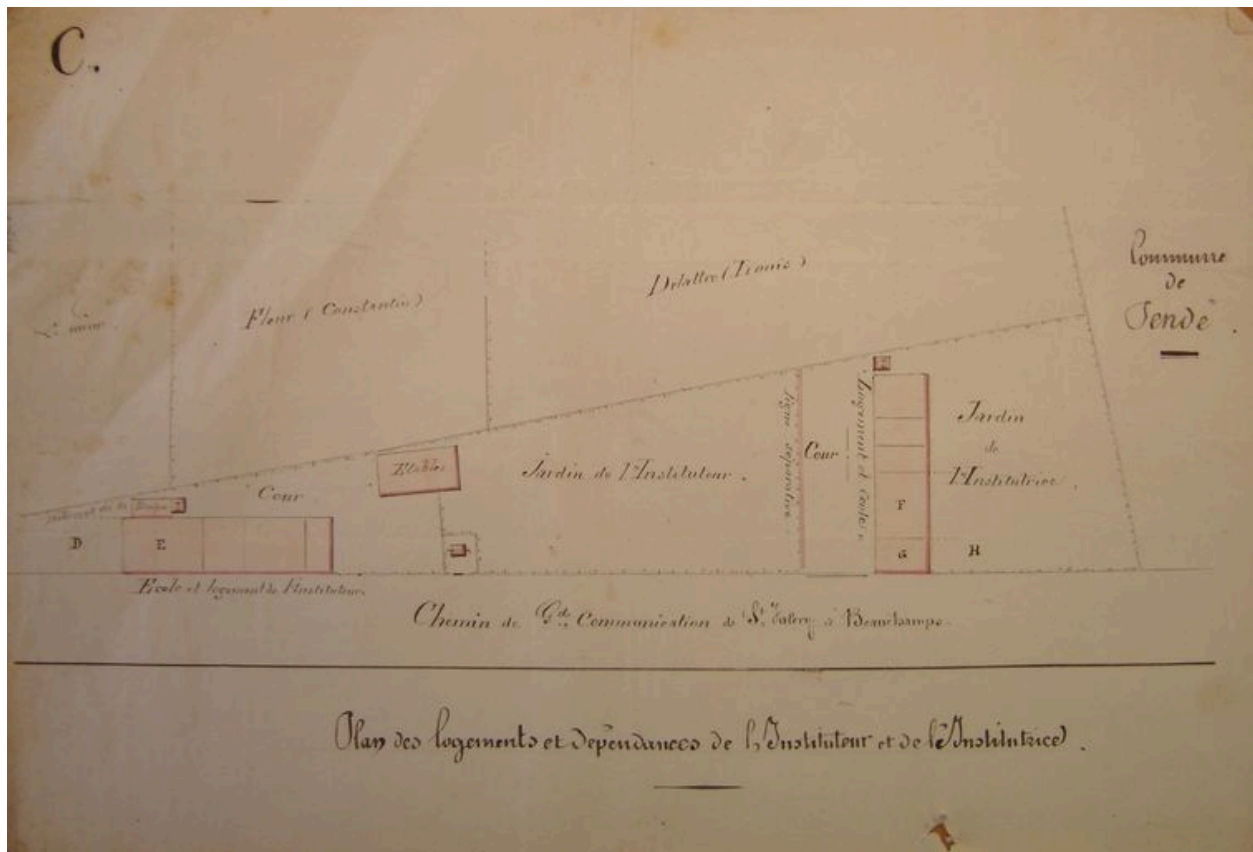 C.
Commune
de
Pendé.
Fleur (Constantin)
Delattre (
Cour
Etables
Jardin de l'Instituteur.
ligne séparative
Cour
Logement et Ecoles
Jardin
de
l'Institutrice.
D
E
F
G
H
Ecole et logement de l'Instituteur.
Chemin de Gde Communication de St Valery à Beauchamps.
Plan des logements et dépendances de l'Instituteur et de l'Institutrice.